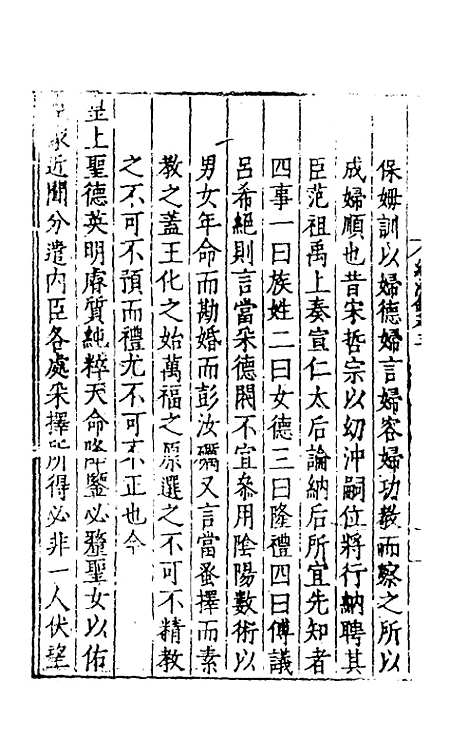 保姆訓以婦德婦言婦容婦功教而察之所以
成婦順也昔宋哲宗以幼沖嗣位將行納聘其
臣范祖禹上奏宣仁太后論納后所宜先知者
四事一曰族姓二曰女德三曰隆禮四曰傅議
呂希絕則言當采德閥不宜叅用陰陽數術以
男女年命而勘婚而彭汝礪又言當蚤擇而素
教之蓋王化之始萬福之原選之不可不精教
之不可不預而禮尤不可不正也今
皇上聖德英明睿質純粹天命降鑒必釐聖女以佑
家近聞分遣內臣各處采擇所得必非一人伏望